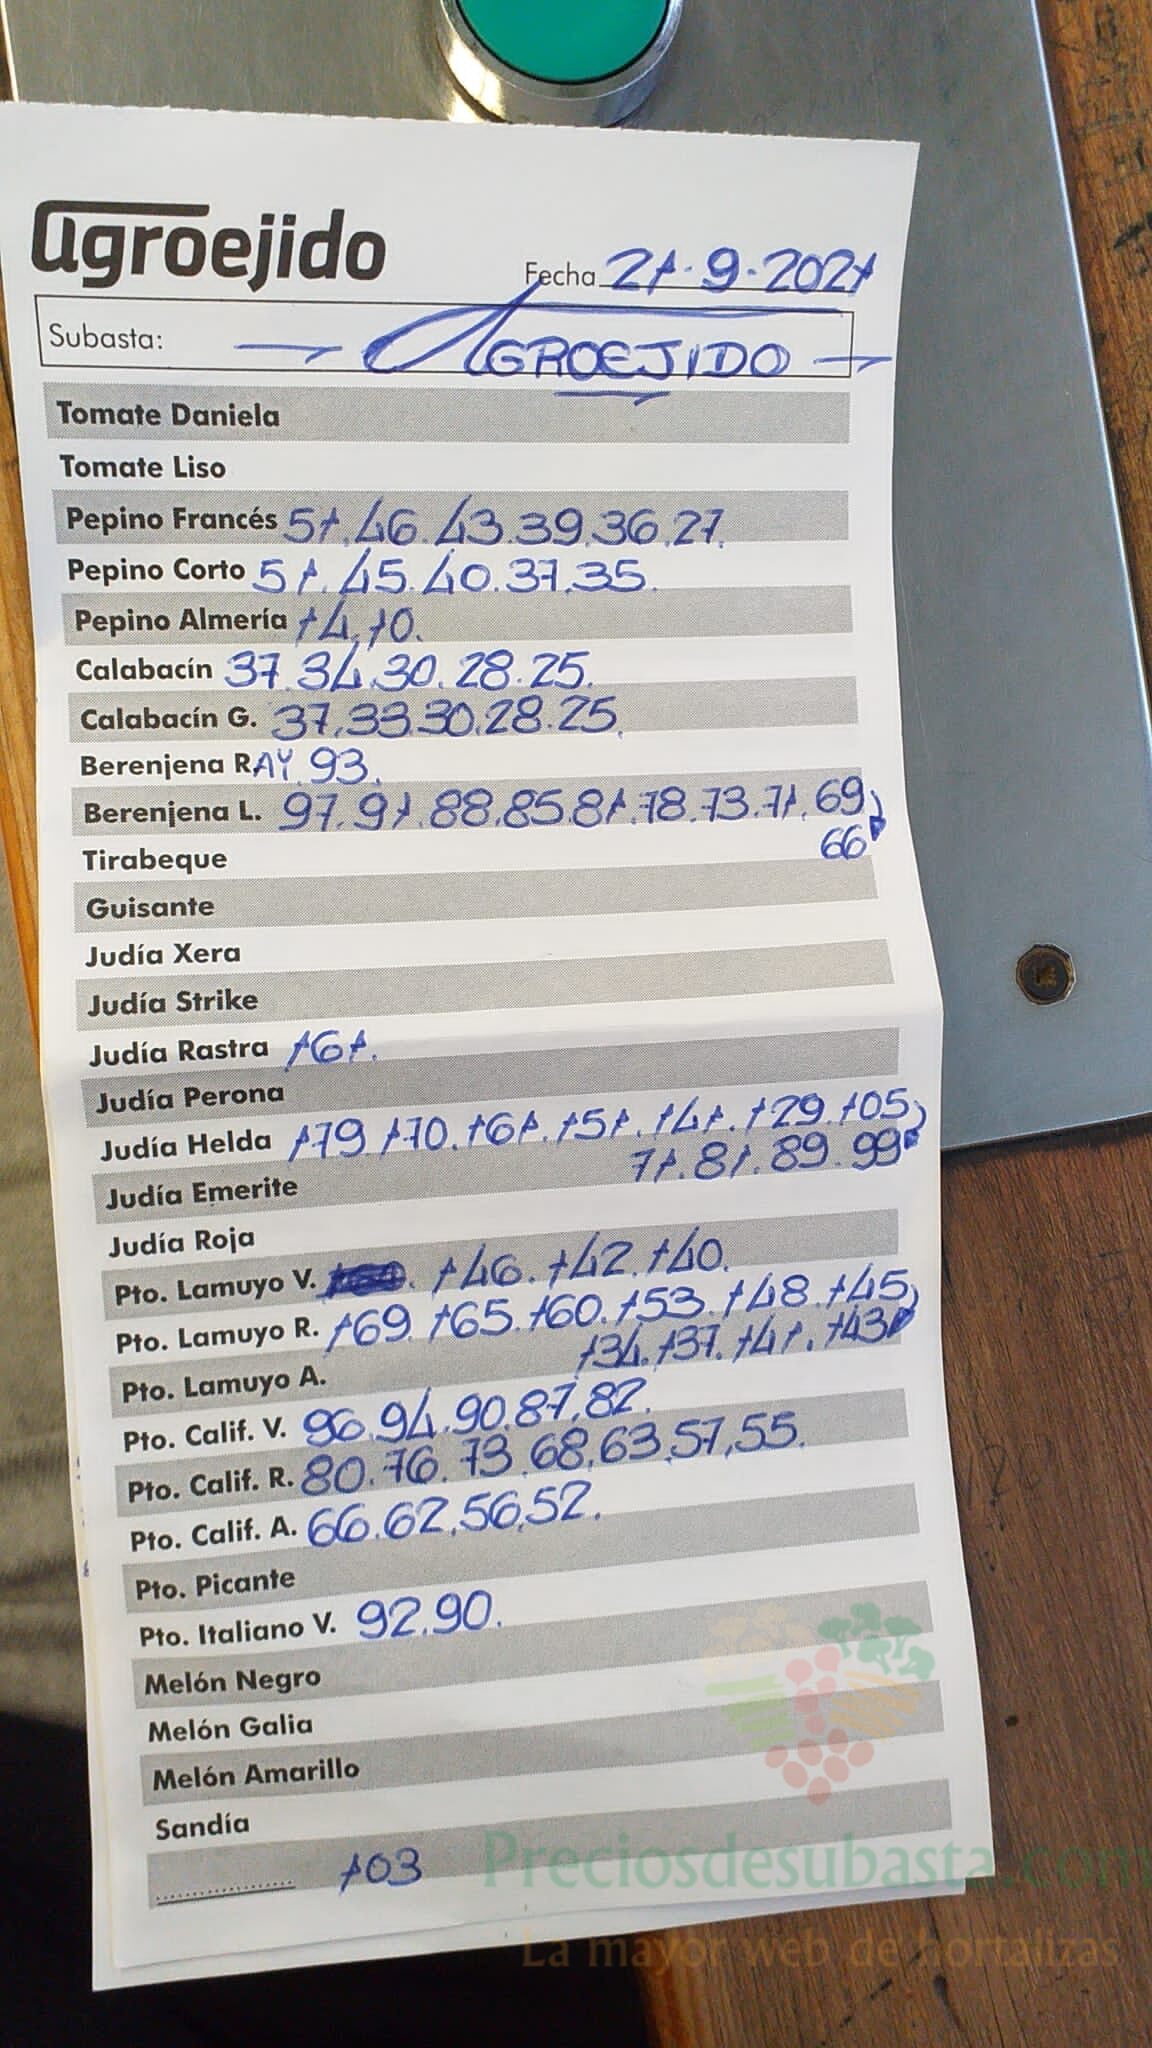 agroejido
Fecha 21.9.2021
Subasta: AGROEJIDO
Tomate Daniela
Tomate Liso
Pepino Francés 51.46.43.39.36.27.
Pepino Corto 51.45.40.37.35.
Pepino Almería 14.10.
Calabacín 37.34.30.28.25.
Calabacín G. 37.33.30.28.25.
Berenjena RAY 93.
Berenjena L. 97.91.88.85.81.78.73.71.69
66
Tirabeque
Guisante
Judía Xera
Judía Strike
Judía Rastra 161.
Judía Perona
Judía Helda 179.170.161.151.141.129.105
71.81.89.99
Judía Emerite
Judía Roja
Pto. Lamuyo V. 146.142.140.
Pto. Lamuyo R. 169.165.160.153.148.145
134.137.141.143
Pto. Lamuyo A.
Pto. Calif. V. 96.94.90.87.82.
Pto. Calif. R. 80.76.73.68.63.57.55.
Pto. Calif. A. 66.62.56.52.
Pto. Picante
Pto. Italiano V. 92.90.
Melón Negro
Melón Galia
Melón Amarillo
Sandía
103
Preciosdesubasta.com
La mayor web de hortalizas